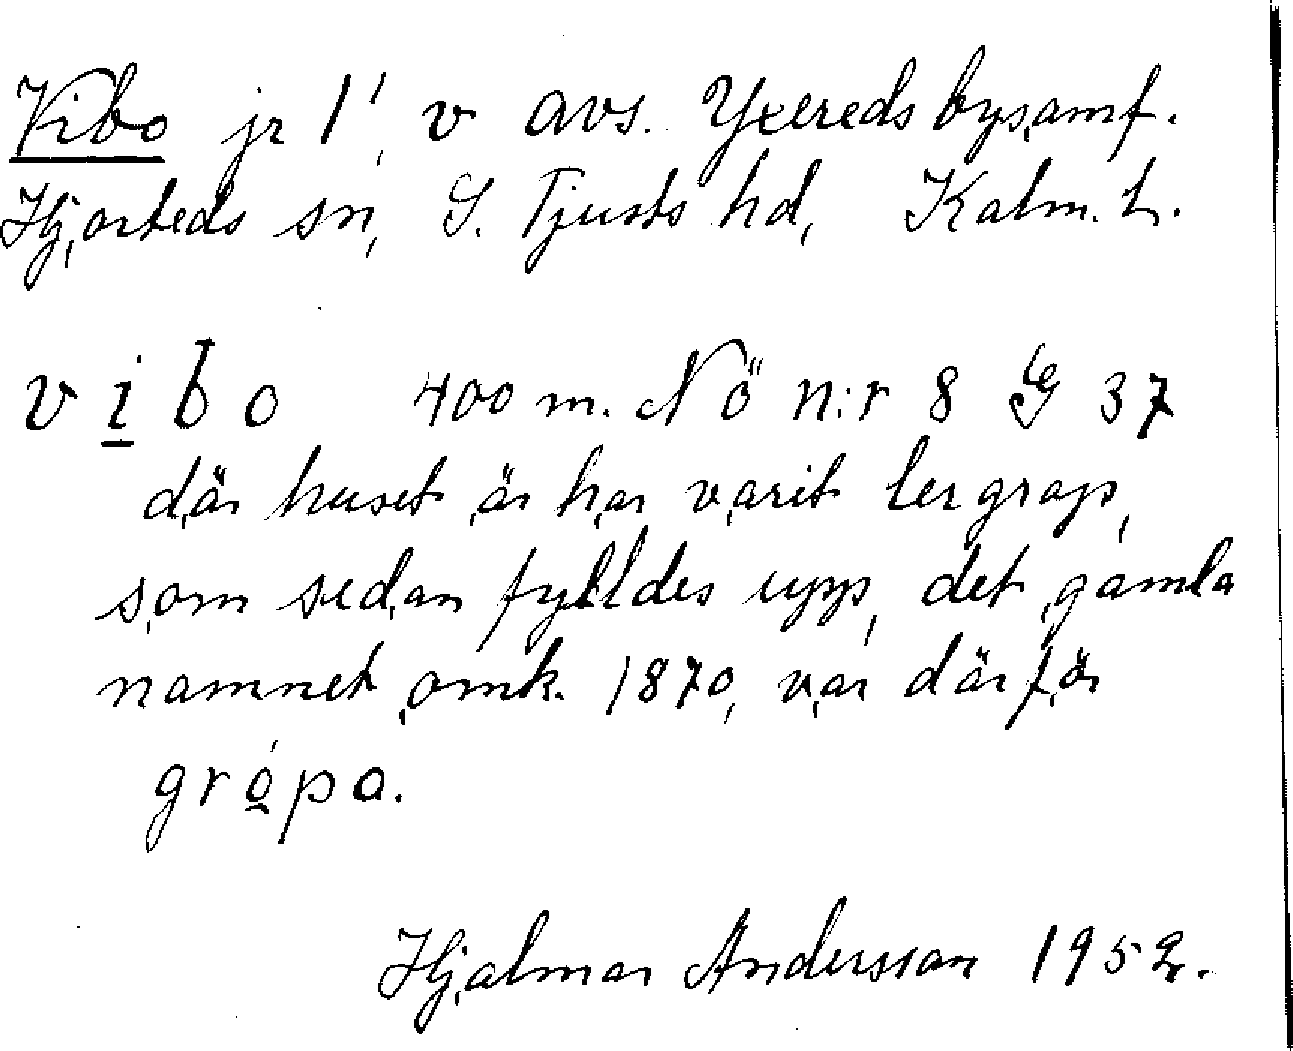 Vibo jr 1', v avs. Yxereds bysamf.
Hjorteds sn, S. Tjusts hd, Kalm. L.
v i b o 400 m. NÖ n:r 8 G 37
där huset är har varit lergrop,
som sedan fylldes upp, det gamla
namnet, omk. 1870, var därför
grópa.
Hjalmar Andersson 1952.